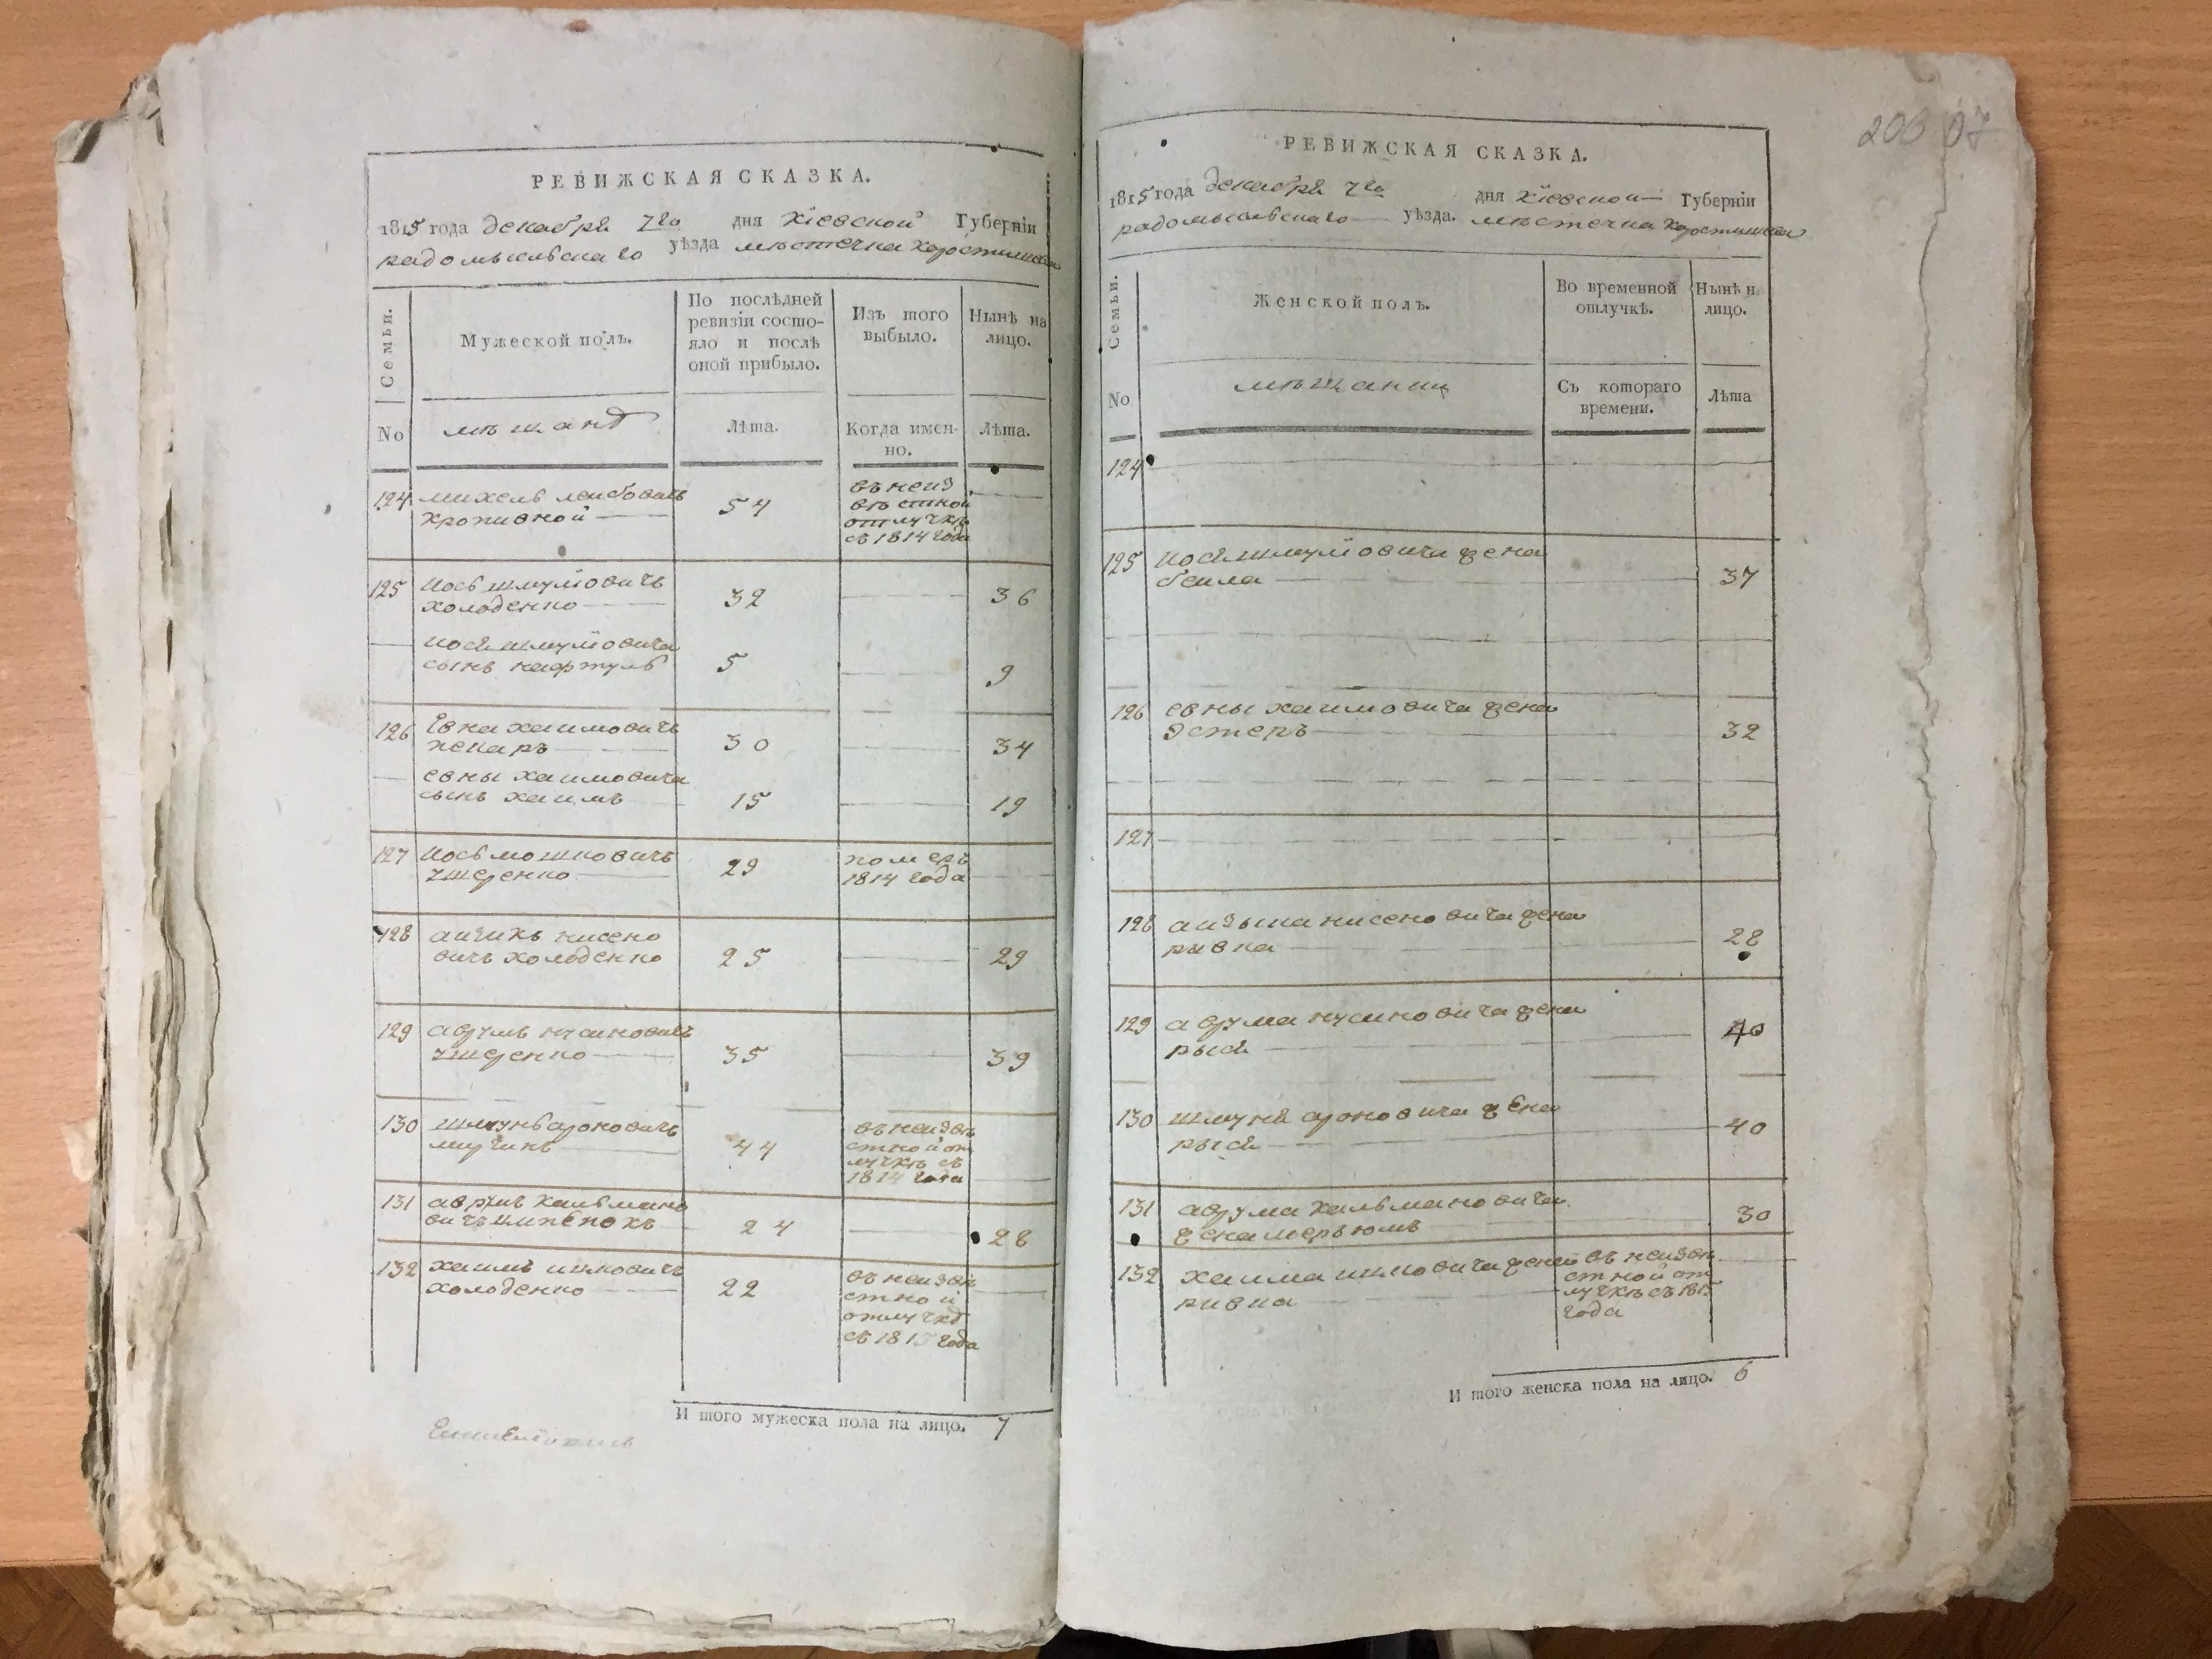 РЕВИЖСКАЯ СКАЗКА.
1815 года декабря 7го дня Кіевской Губерніи
радомысльскаго уѣзда мѣстечка Коростишева
Семьи.
Мужеской полъ.
По послѣдней
ревизіи состо-
яло и послѣ
оной прибыло.
Изъ того
выбыло.
Нынѣ на
лицо.
No
мѣщанъ
Лѣта.
Когда имен-
но.
Лѣта.
124 михель лейбовичъ
кропивной 54
въ неиз
вѣстной
отлучкѣ
съ 1814 года
125 иось шмулïовичъ
холоденко 32 36
иося шмулïовича
сынъ нафтуль 5 9
126 Евна хаимовичъ
пекаръ 30 34
евны хаимовича
сынъ хаимъ 15 19
127 иось мошковичъ
29
померъ
1814 года
128 аизикъ нисено
вичъ холоденко 25 29
129 аврумъ нусиновичъ
35 39
130 шмунь ароновичъ
44
въ неизвѣ
стной от
лучкѣ съ
1814 года
131 аврумъ кальмано
вичъ 24 28
132 хаимъ ицковичъ
холоденко 22
въ неизвѣ
стной
отлучкѣ
съ 1815 года
И того мужеска пола на лицо. 7
РЕВИЖСКАЯ СКАЗКА.
1815 года декабря 7го дня Кïевской Губерніи
радомысльскаго уѣзда. мѣстечка Коростишева
Семьи.
Женской полъ.
Во временной
отлучкѣ.
Нынѣ н
лицо.
No
мѣщанки
Съ котораго
времени.
Лѣта
124
125 иося шмулïовича жена
беила 37
126 евны хаимовича жена
эстеръ 32
127
128 аизыка нисеновича жена
ривка 28
129 аврума нусиновича жена
рыся 40
130 шмуня ароновича жена
рыся 40
131 аврума кальмановича
жена мерьюмъ 30
132 хаима ицковича жена
ривка
въ неизвѣ
стной от
лучкѣ съ 1815
года
И того женска пола на лицо. 6